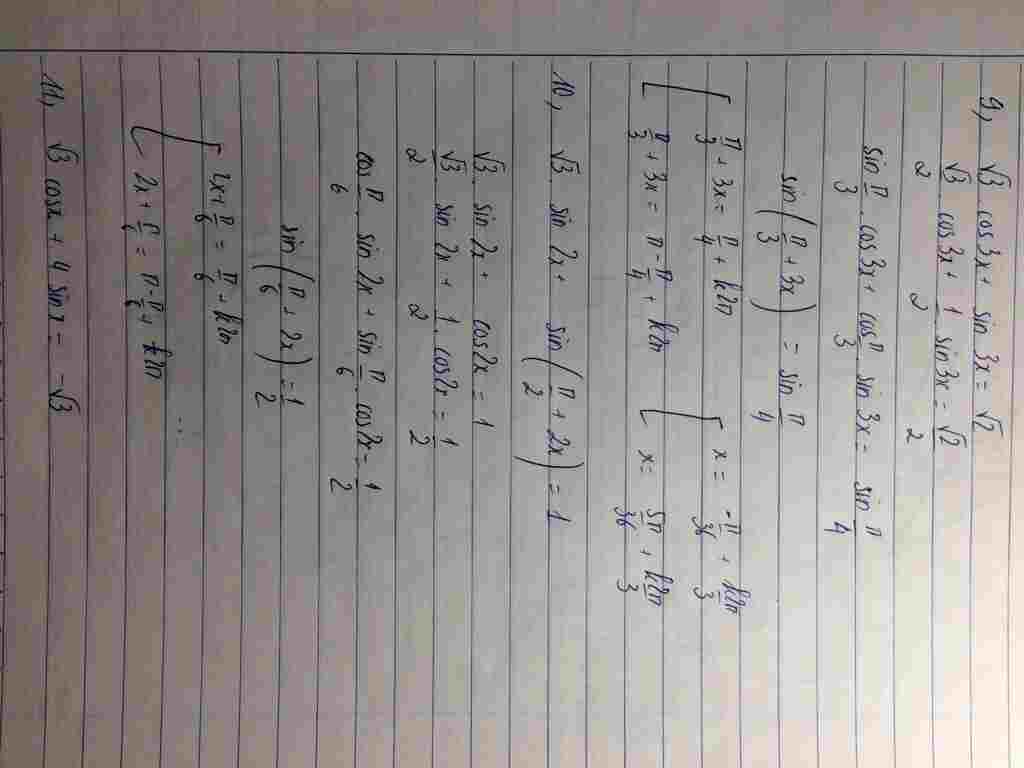 9, √3 cos3x + sin 3x = √2
√3/2 cos3x + 1/2 sin3x = √2/2
sin π/3 . cos3x + cos π/3 . sin 3x = sin π/4
sin(π/3 + 3x) = sin π/4
[ π/3 + 3x = π/4 + k2π [ x = -π/36 + k2π/3
[ π/3 + 3x = π - π/4 + k2π [ x = 5π/36 + k2π/3
10, √3 . sin 2x + sin(π/2 + 2x) = 1
√3 . sin 2x + cos2x = 1
√3/2 . sin 2x + 1/2 . cos2x = 1/2
cos π/6 . sin 2x + sin π/6 . cos2x = 1/2
sin(π/6 + 2x) = 1/2
[ 2x + π/6 = π/6 + k2π
[ 2x + π/6 = π - π/6 + k2π
...
11, √3 cosx + 4 sinx = -√3